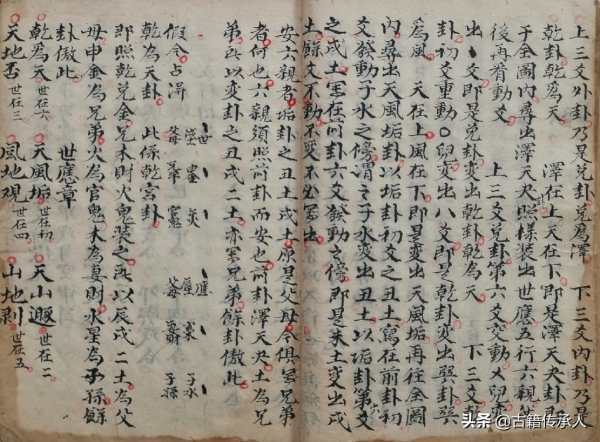 上三爻外卦乃是兑卦兑為澤 下三爻內卦乃是
乾卦乾為天 澤在上天在下即是澤天夬卦
于全圖內尋出澤天夬照樣裝出世應五行六親
後再看動爻 上三爻是兑卦第六爻交動乂兒変
出、爻即是兑卦変出乾卦乾為天 下三爻乾
卦初爻重動〇兒変出八爻即是乾卦変出巽卦巽
為風 天在上風在下即是変出天風垢再往全圖
內尋出天風垢卦以垢卦初爻之丑土寫在前卦初
爻發動子水之傍謂之子水変出丑土以垢卦第六
之戌土寫在前卦六爻發動之傍即是未土変出戌
土餘爻不動不変不必寫出
安六親者垢卦之丑土戌土原是父母今俱寫兄弟
者何也六親須照前卦而安也前卦澤天夬土為兄
弟所以変卦之丑戌二土亦寫兄弟餘卦倣此
假令占得
乾為天卦 此係乾宮卦
即照乾兑金兄本財火鬼裝之所以辰戌二土為父
母申金為兄弟火為官鬼木為妻財水星為子孫餘
卦倣此 世應章
乾為天世在六 天風垢世在初 天山遯世在二
天地否世在三 風地观世在四 山地剥世在五
头条 @古籍传承人